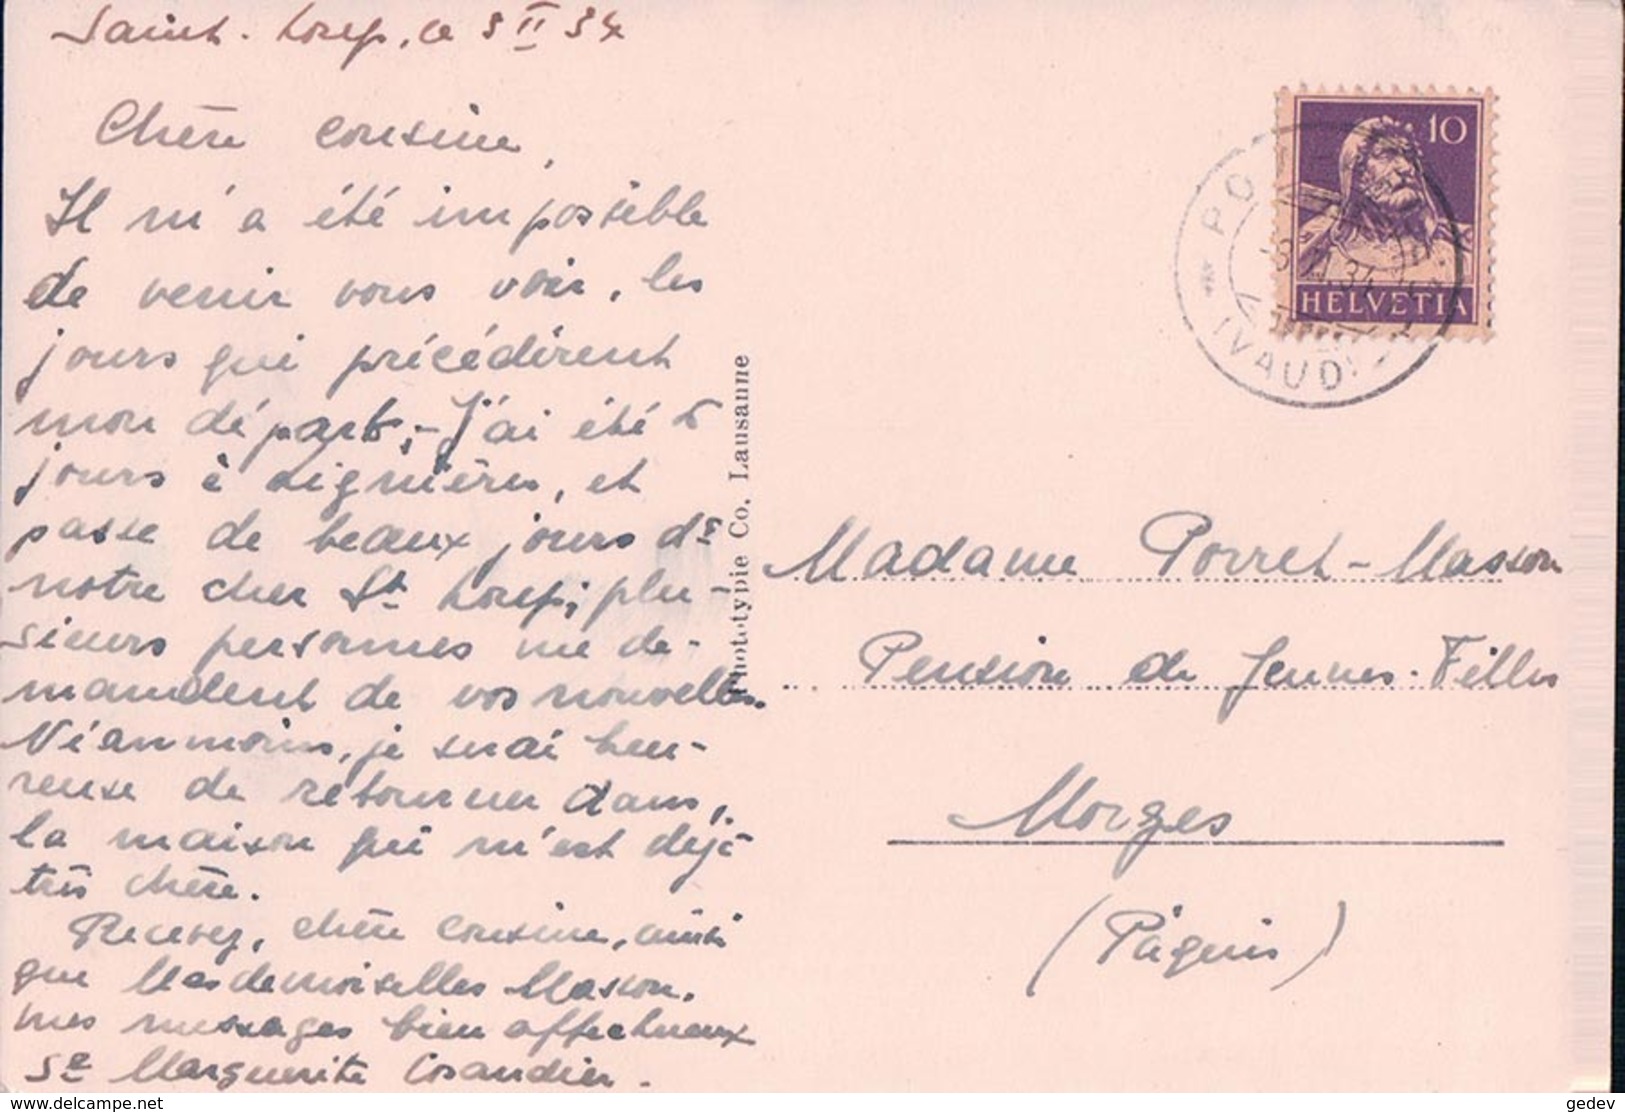 Saint-Loup, le 3 II 34
Chère cousine,
Il m'a été impossible
de venir vous voir, les
jours qui précédèrent
mon départ;- J'ai été 5
jours à Lignières, et
passe de beaux jours ds
notre cher St Loup; plu-
sieurs personnes me de-
mandent de vos nouvelles.
Néanmoins, je serai heu-
reuse de retourner dans,
la maison qui m'est déjà
très chère.
Recevez, chère cousine, ainsi
que Mesdemoiselles Masson,
mes messages bien affectueux
Sr Marguerite Cosandier.
Phototypie Co. Lausanne
10
HELVETIA
(VAUD)
Madame Porret-Masson
Pension de Jeunes-Filles
Morges
(Pâquis)
delcampe.net
gedev